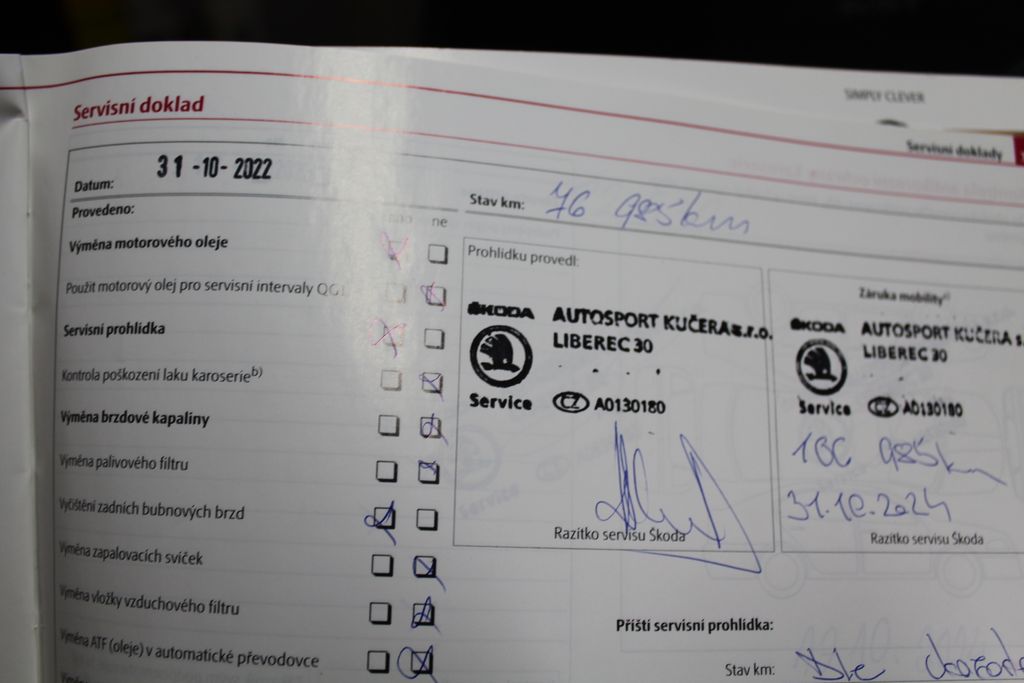 SIMPLY CLEVER
Servisní doklady
Servisní doklad
Datum: 31-10-2022
Stav km: 76 985km
Provedeno:
ano ne
Výměna motorového oleje
Použit motorový olej pro servisní intervaly QG1
Servisní prohlídka
Kontrola poškození laku karoserieb)
Výměna brzdové kapaliny
Výměna palivového filtru
Vyčištění zadních bubnových brzd
Výměna zapalovacích svíček
Výměna vložky vzduchového filtru
Výměna ATF (oleje) v automatické převodovce
Prohlídku provedl:
ŠKODA
AUTOSPORT KUČERA s.r.o.
LIBEREC 30
Service
CZ A0130180
Razítko servisu Škoda
Záruka mobility
ŠKODA
AUTOSPORT KUČERA s.
LIBEREC 30
Service
CZ A0130180
985km
31.10.2024
Razítko servisu Škoda
Příští servisní prohlídka:
Stav km: Dle